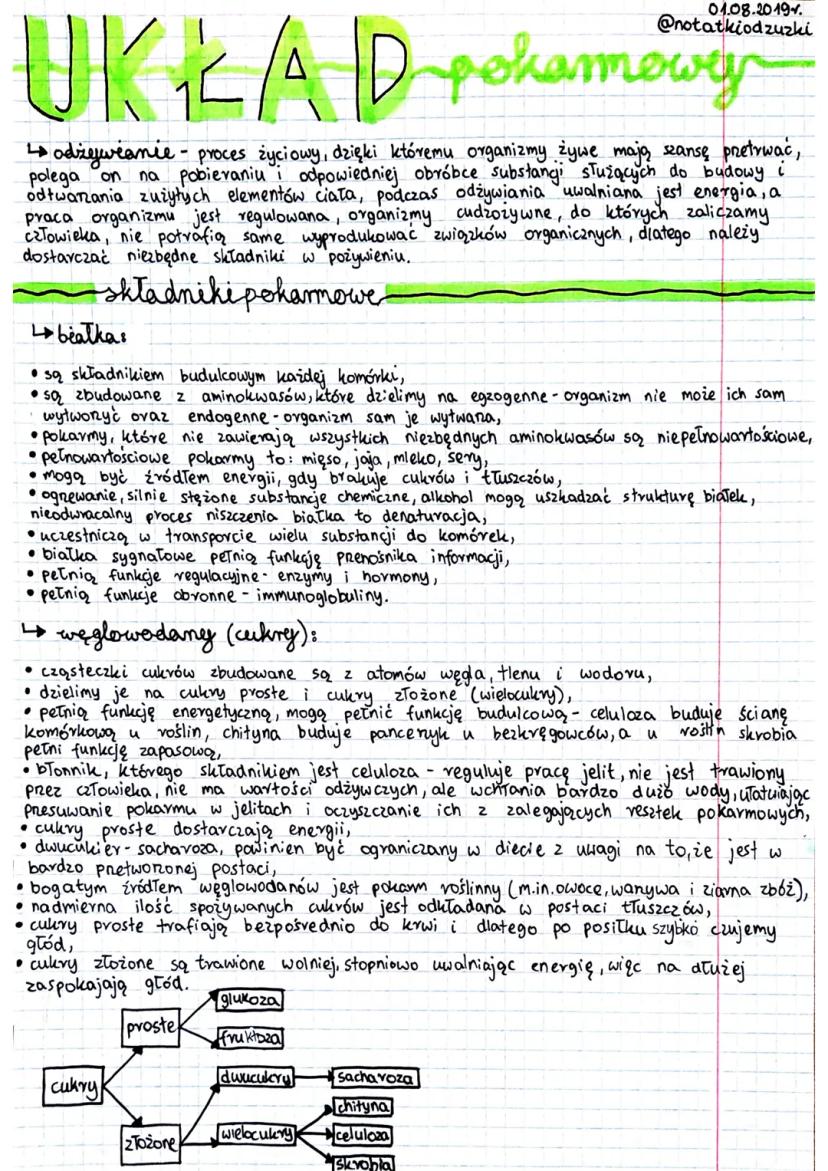 01.08.2019r.
@notatkiodzuzki
UKŁAD pokarmowy
↳ odżywianie - proces życiowy, dzięki któremu organizmy żywe mają szansę przetrwać,
polega on na pobieraniu i odpowiedniej obróbce substancji służących do budowy i
odtwarzania zużytych elementów ciała, podczas odżywiania uwalniana jest energia, a
praca organizmu jest regulowana, organizmy cudzożywne, do których zaliczamy
człowieka, nie potrafią same wyprodukować związków organicznych, dlatego należy
dostarczać niezbędne składniki w pożywieniu.
składniki pokarmowe
↳ białka:
• są składnikiem budulcowym każdej komórki,
• są zbudowane z aminokwasów, które dzielimy na egzogenne - organizm nie może ich sam
wytworzyć oraz endogenne - organizm sam je wytwarza,
• pokarmy, które nie zawierają wszystkich niezbędnych aminokwasów są niepełnowartościowe,
• pełnowartościowe pokarmy to: mięso, jaja, mleko, sery,
• mogą być źródłem energii, gdy brakuje cukrów i tłuszczów,
• ogrzewanie, silnie stężone substancje chemiczne, alkohol mogą uszkadzać strukturę białek,
nieodwracalny proces niszczenia białka to denaturacja,
• uczestniczą w transporcie wielu substancji do komórek,
• białka sygnałowe pełnią funkcję przenośnika informacji,
• pełnią funkcje regulacyjne - enzymy i hormony,
• pełnią funkcje obronne - immunoglobuliny.
↳ węglowodany (cukry):
• cząsteczki cukrów zbudowane są z atomów węgla, tlenu i wodoru,
• dzielimy je na cukry proste i cukry złożone (wielocukry),
• pełnią funkcję energetyczną, mogą pełnić funkcję budulcową - celuloza buduje ścianę
komórkową u roślin, chityna buduje pancerzyk u bezkręgowców, a u roślin skrobia
pełni funkcję zapasową,
• błonnik, którego składnikiem jest celuloza - reguluje pracę jelit, nie jest trawiony
przez człowieka, nie ma wartości odżywczych, ale wchłania bardzo dużo wody, ułatwiając
przesuwanie pokarmu w jelitach i oczyszczanie ich z zalegających resztek pokarmowych,
• cukry proste dostarczają energii,
• dwucukier - sacharoza, powinien być ograniczany w diecie z uwagi na to, że jest w
bardzo przetworzonej postaci,
• bogatym źródłem węglowodanów jest pokarm roślinny (m.in. owoce, warzywa i ziarna zbóż),
• nadmierna ilość spożywanych cukrów jest odkładana w postaci tłuszczów,
• cukry proste trafiają bezpośrednio do krwi i dlatego po posiłku szybko czujemy
głód,
• cukry złożone są trawione wolniej, stopniowo uwalniając energię, więc na dłużej
zaspokajają głód.
glukoza
proste
fruktoza
cukry
dwucukry
sacharoza
chityna
złożone
wielocukry
celuloza
skrobia